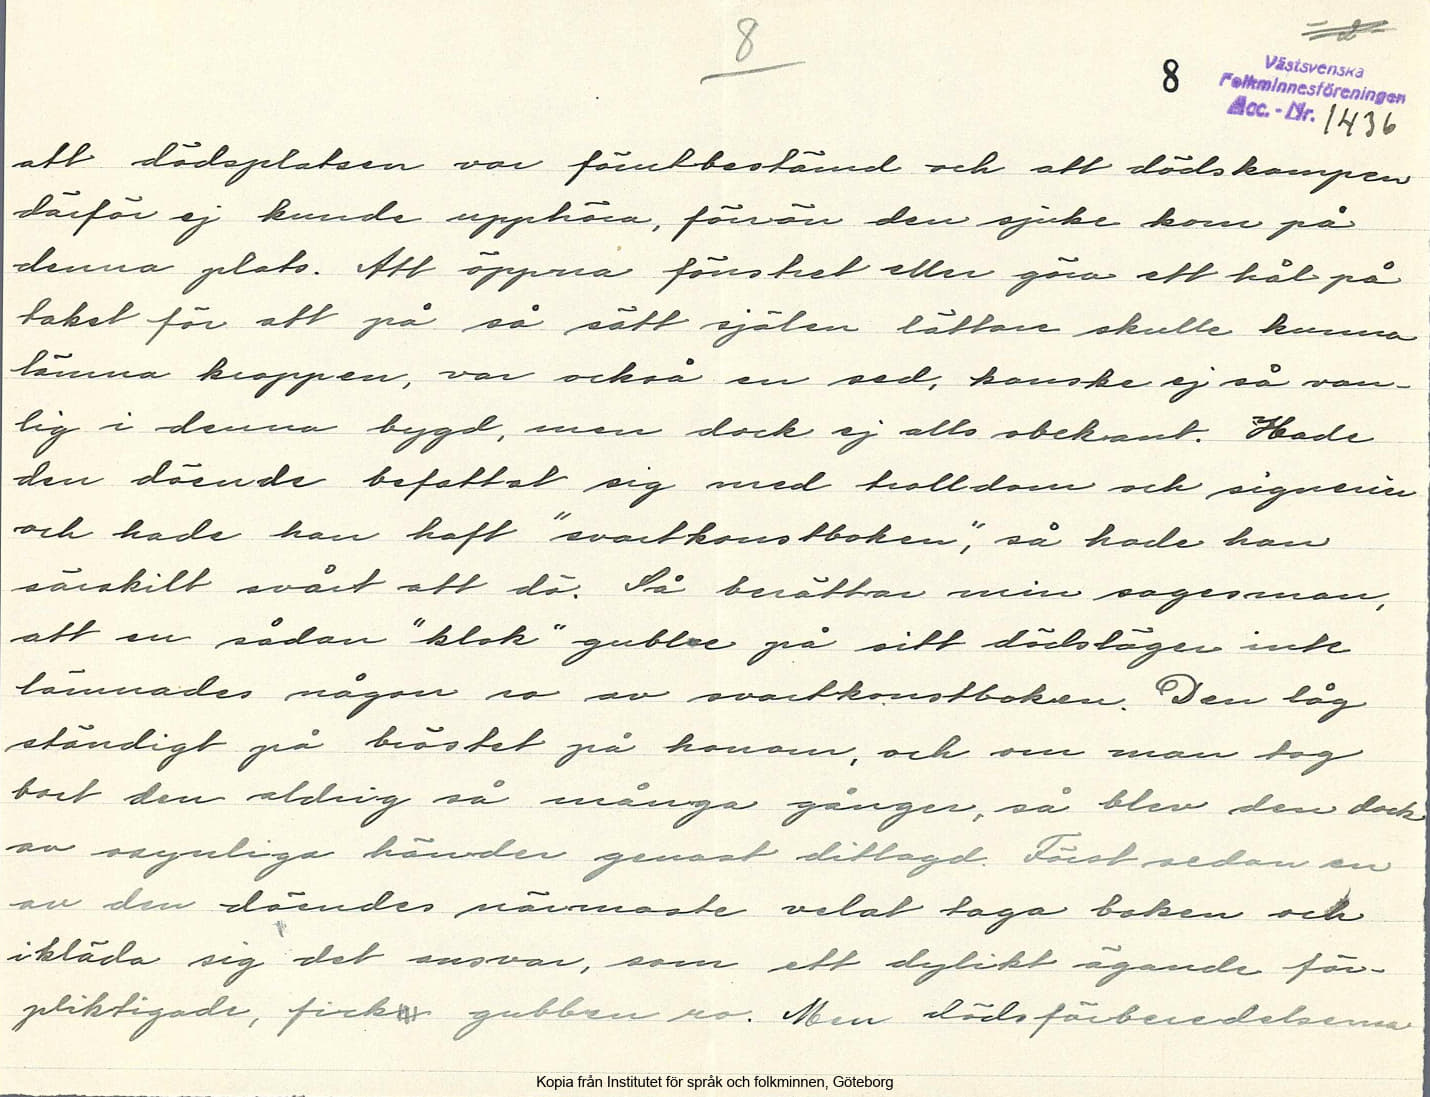 8
8
Västsvenska
Folkminnesföreningen
Acc.-Nr. 1436
att dödsplatsen var förutbestämd och att dödskampen
därför ej kunde upphöra, förrän den sjuke kom på
denna plats. Att öppna fönstret eller göra ett hål på
taket för att på så sätt själen lättare skulle kunna
lämna kroppen, var också en sed, kanske ej så van-
lig i denna bygd, men dock ej alls obekant. Hade
den döende befattat sig med trolldom och signerier
och hade han haft "svartkonstboken", så hade han
särskilt svårt att dö. Så berättar min sagesman,
att en sådan "klok" gubbe på sitt dödsläger inte
lämnades någon ro av svartkonstboken. Den låg
ständigt på bröstet på honom, och om man tog
bort den aldrig så många gånger, så blev den dock
av osynliga händer genast dittagd. Först sedan en
av den döendes närmaste velat taga boken och
ikläda sig det ansvar, som ett dylikt ägande för-
pliktigade, fick gubben ro. Men dödsförberedelserna
Kopia från Institutet för språk och folkminnen, Göteborg